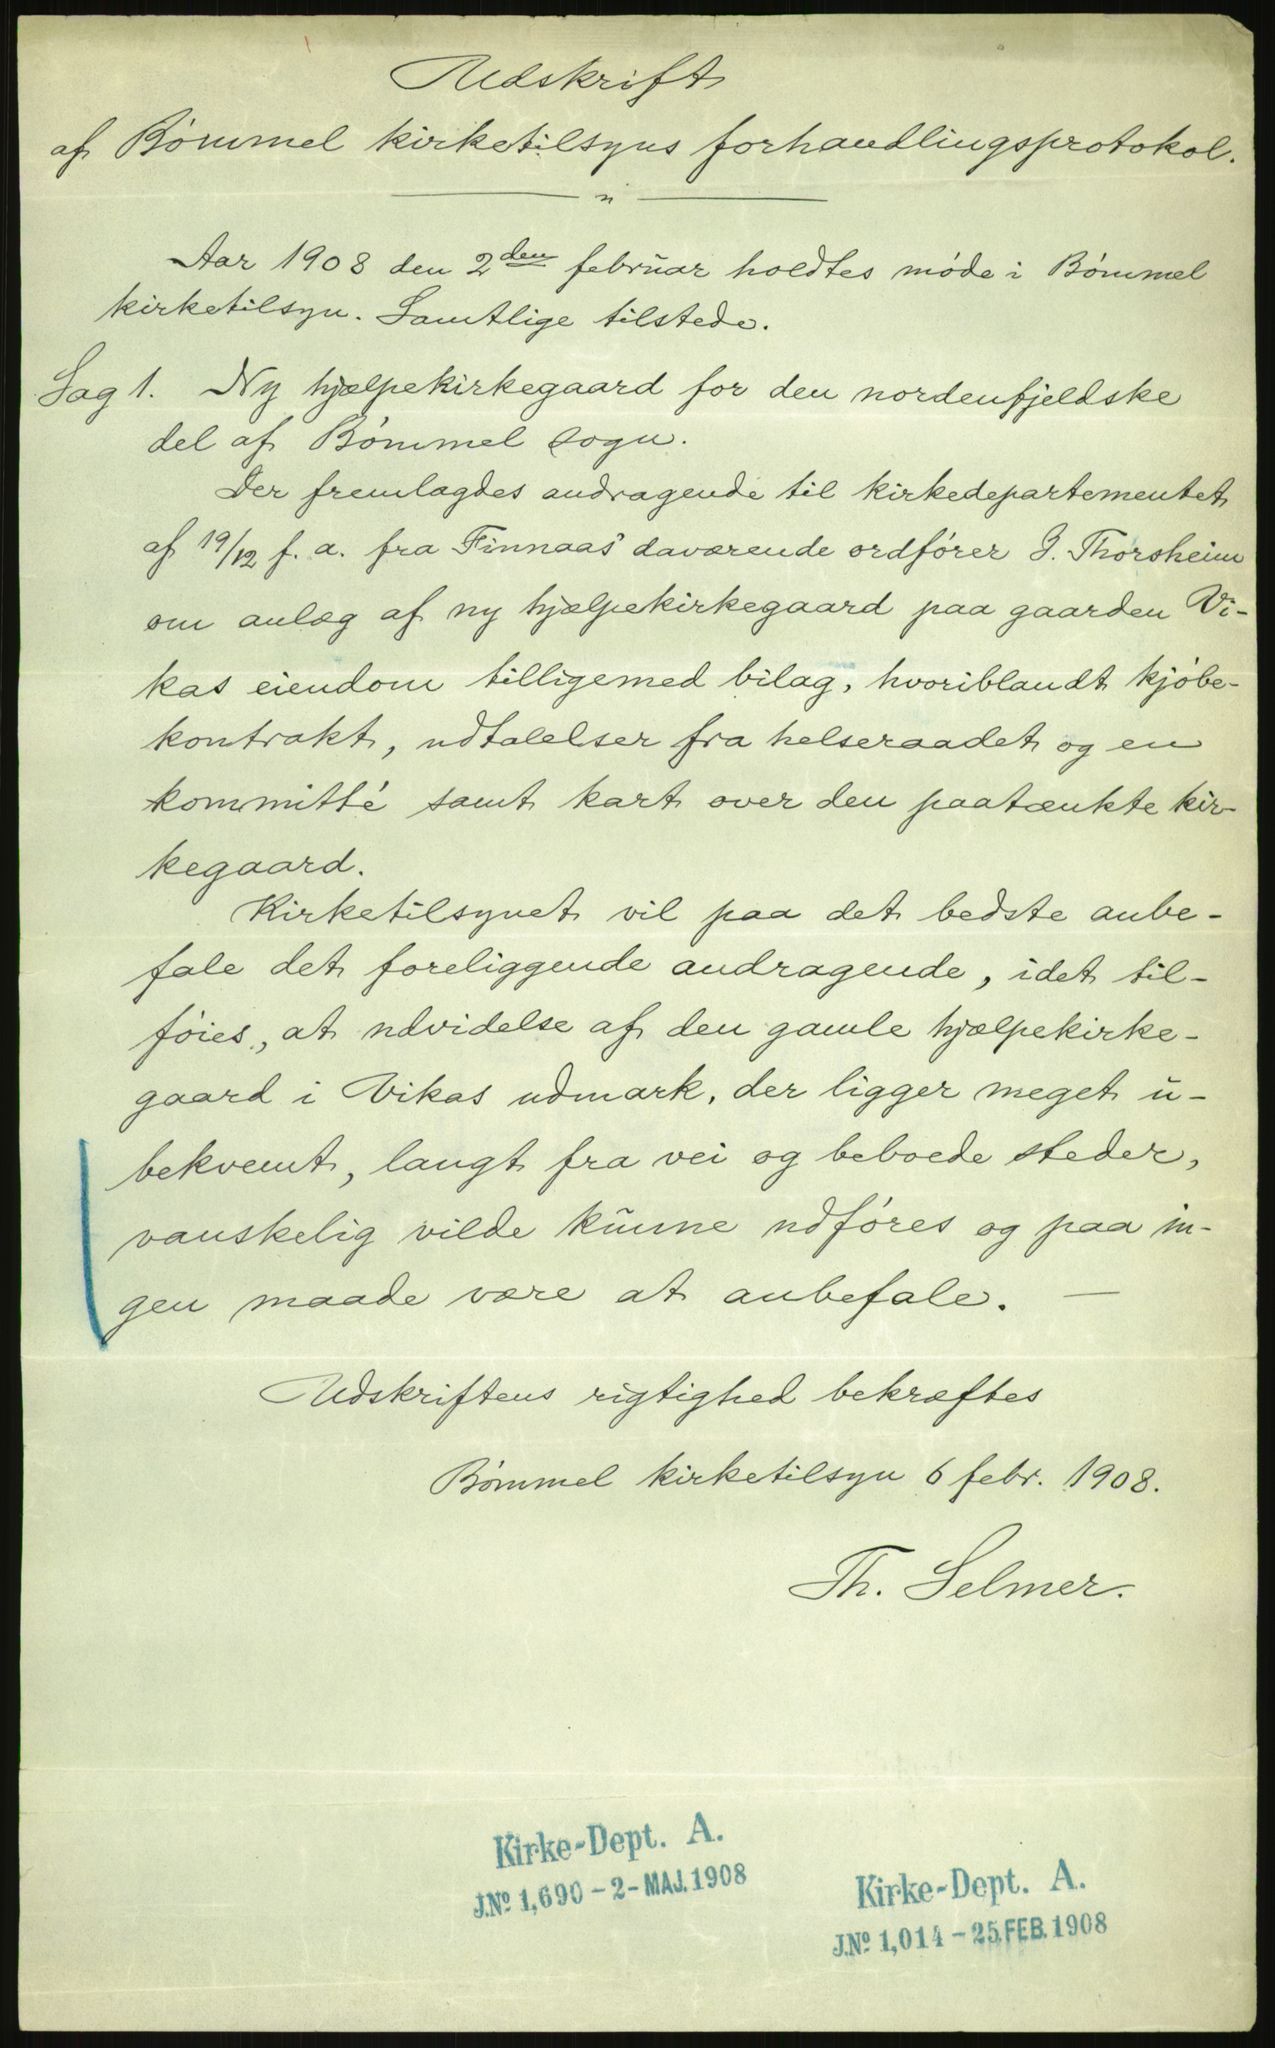 Udskrift
af Bømmel kirketilsyns forhandlingsprotokol.
Aar 1908 den 2den februar holdtes møde i Bømmel
kirketilsyn. Samtlige tilstede.
Sag 1. Ny hjælpekirkegaard for den nordenfjeldske
del af Bømmel sogn.
Der fremlagdes andragende til kirkedepartementet
af 19/12 f. a. fra Finnaas' daværende ordfører J. Thorsheim
om anlæg af ny hjælpekirkegaard paa gaarden Vi-
kas eiendom tilligemed bilag, hvoriblandt kjøbe-
kontrakt, udtalelser fra helseraadet og en
kommitté samt kart over den paatænkte kir-
kegaard.
Kirketilsynet vil paa det bedste anbe-
fale det foreliggende andragende, idet til-
føies, at udvidelse af den gamle hjælpekirke-
gaard i Vikas udmark, der ligger meget u-
bekvemt, langt fra vei og beboede steder,
vanskelig vilde kunne udføres og paa in-
gen maade være at anbefale. —
Udskriftens rigtighed bekræftes
Bømmel kirketilsyn 6 febr. 1908.
Th. Selmer.
Kirke-Dept. A.
J.No 1,690 - 2 - MAJ. 1908
Kirke-Dept. A.
J.No 1,014 - 25. FEB. 1908